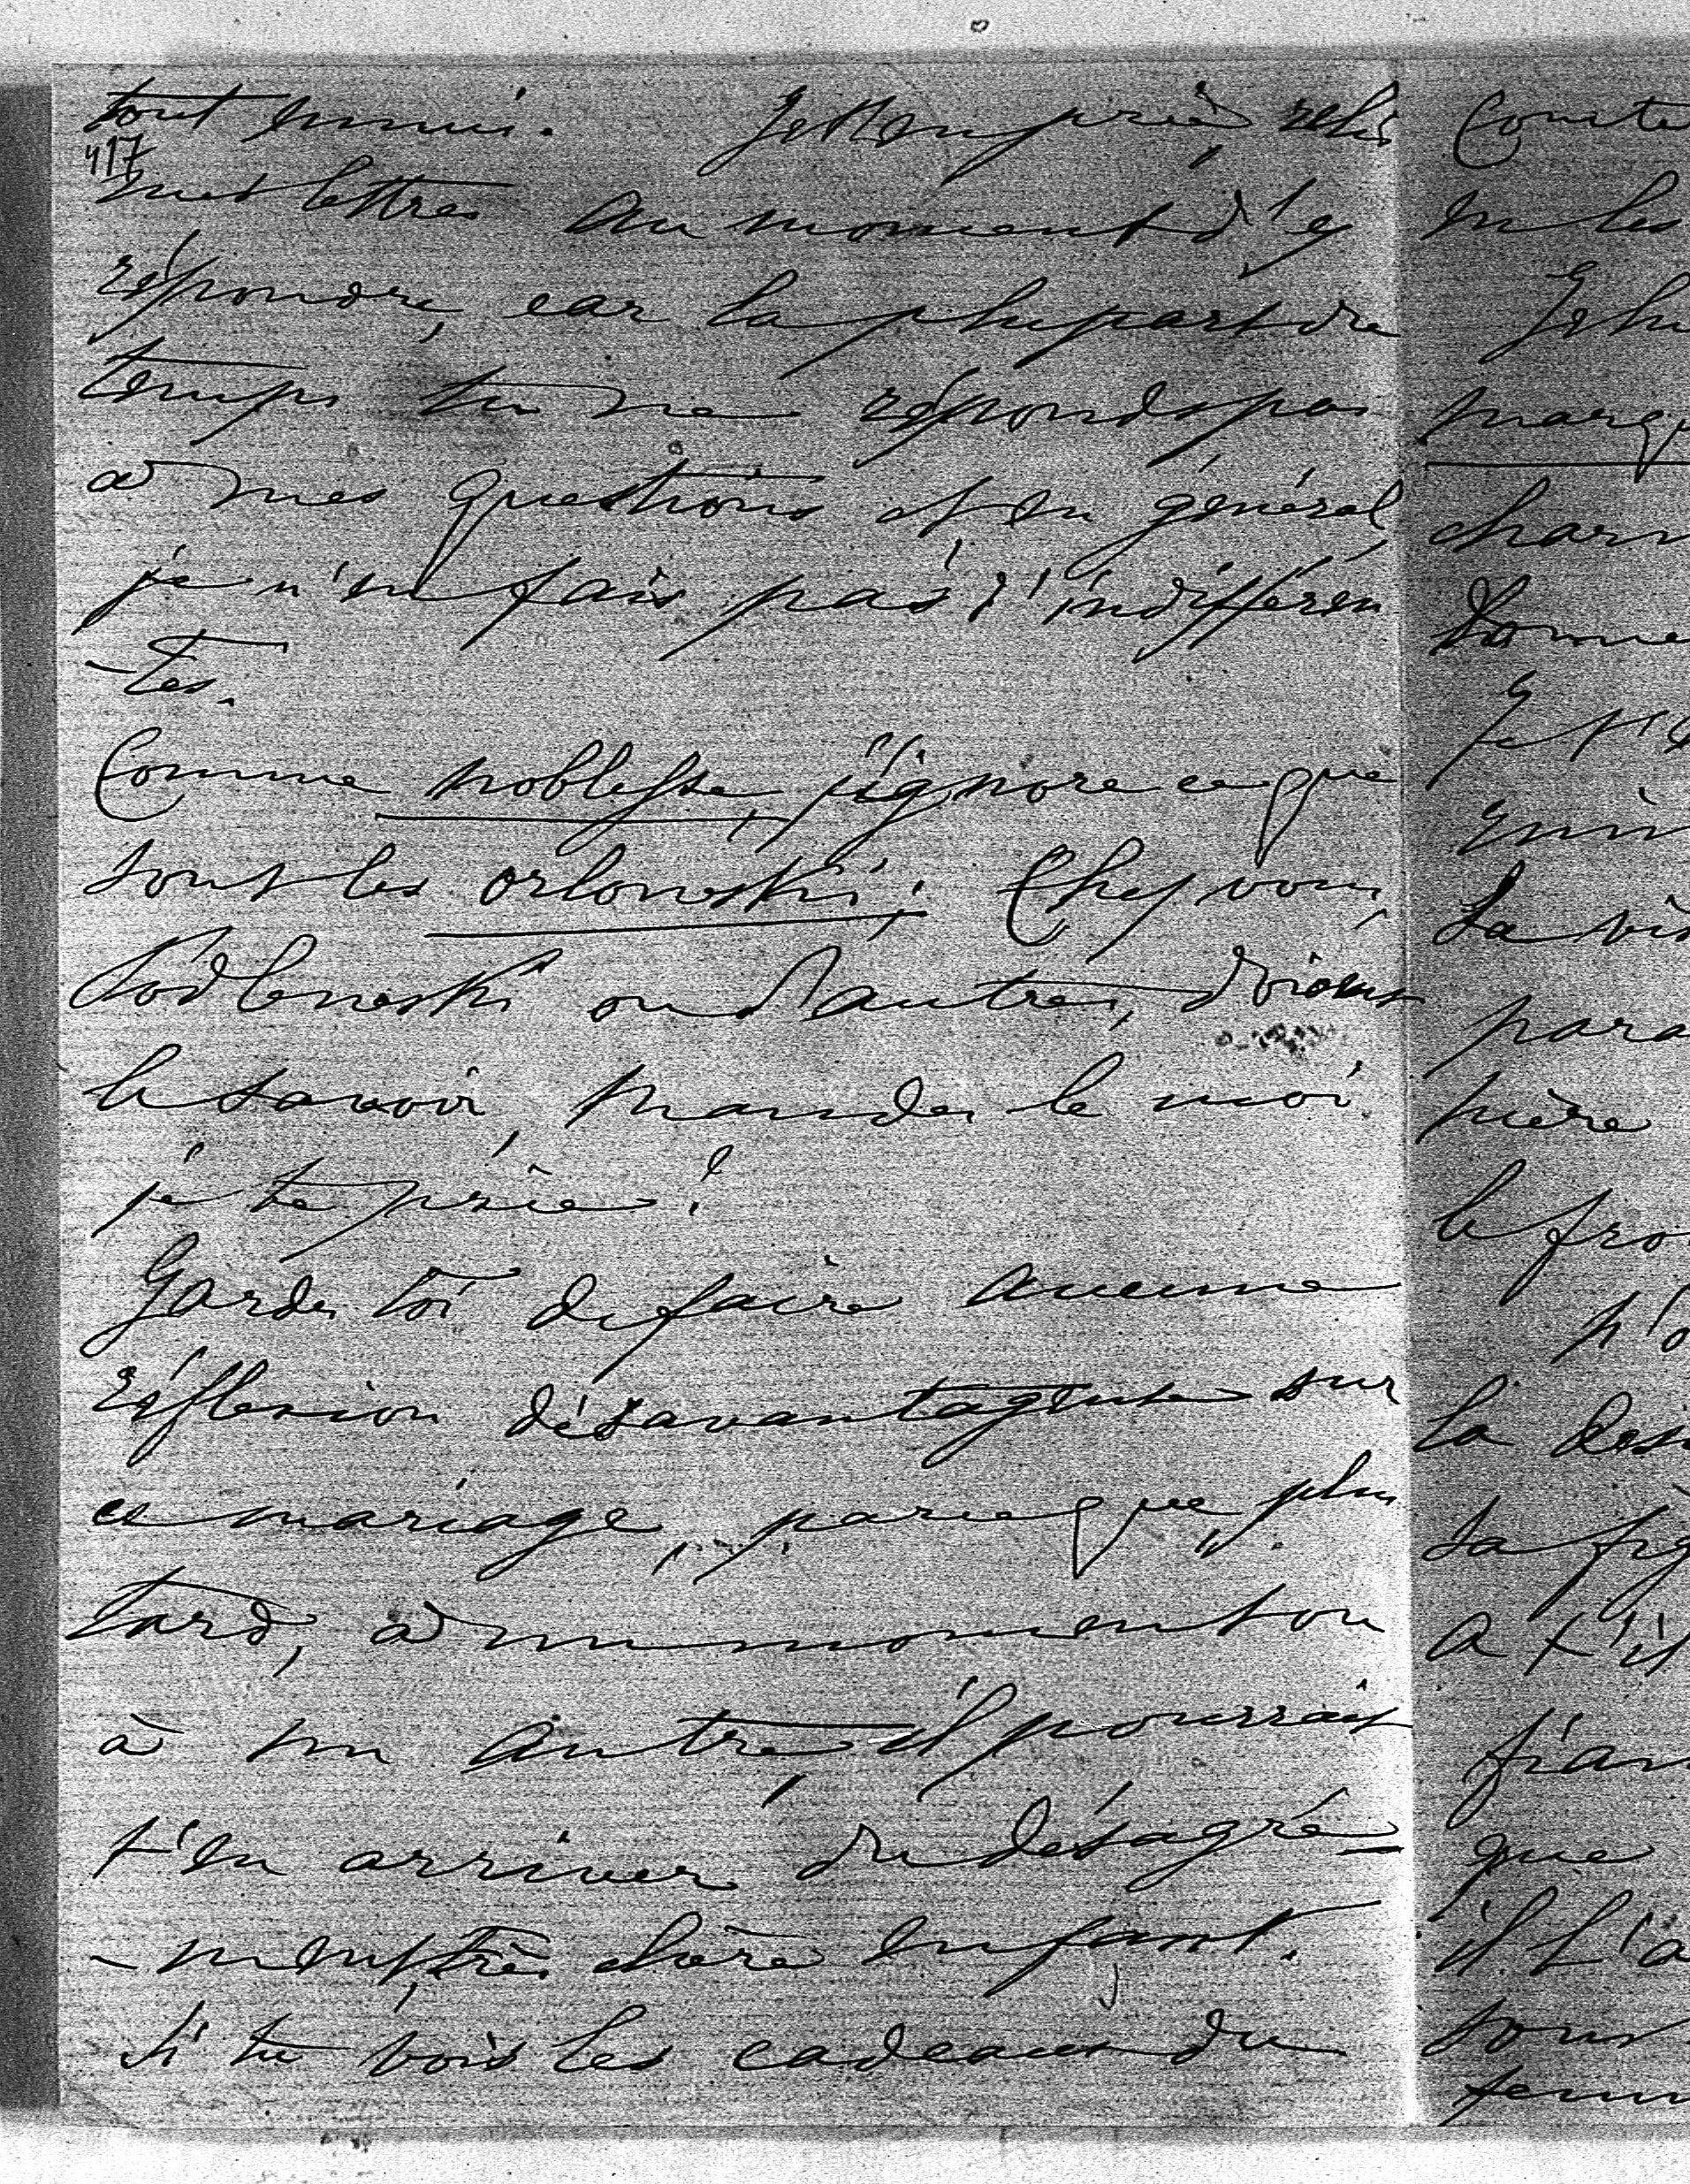 tout ennui. Je t'en prie, relis
417
mes lettres au moment d'y
répondre, car la plupart du
temps tu ne réponds pas
à mes questions et en général
je n'en fais pas d'indifféren
-tes.
Comme noblesse, j'ignore ce que
sont les orlowski; Chez vous
Podlewski ou d'autres, doivent
le savoir, mandes le moi
je te prie!
Gardes toi de faire aucune
réflexion désavantageuse sur
ce mariage, parce que, plus
tard, à un moment ou
à un autre, il pourrait
t'en arriver du désagré-
-ment, très chère enfant.
Si tu vois les cadeaux du
Comte
en les
Je lu
marq
char
Donne
Je t'e
La vis
para
mère
le fro
n'o
la des
sa fig
a t'il
fian
que
il l'a
sour
femm